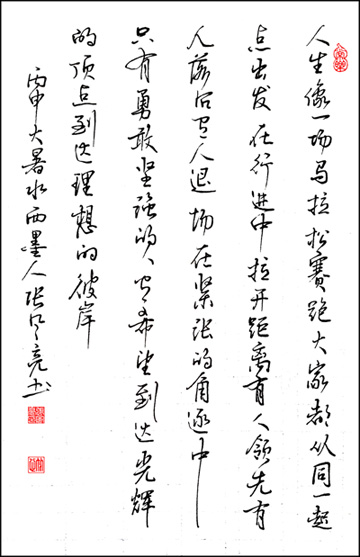 人生像一场马拉松赛跑大家都从同一起
点出发在行进中拉开距离有人领先有
人落后有人退场在紧张的角逐中
只有勇敢坚强的人有希望到达光辉
的顶点到达理想的彼岸
丙申大暑水西墨人张亮书